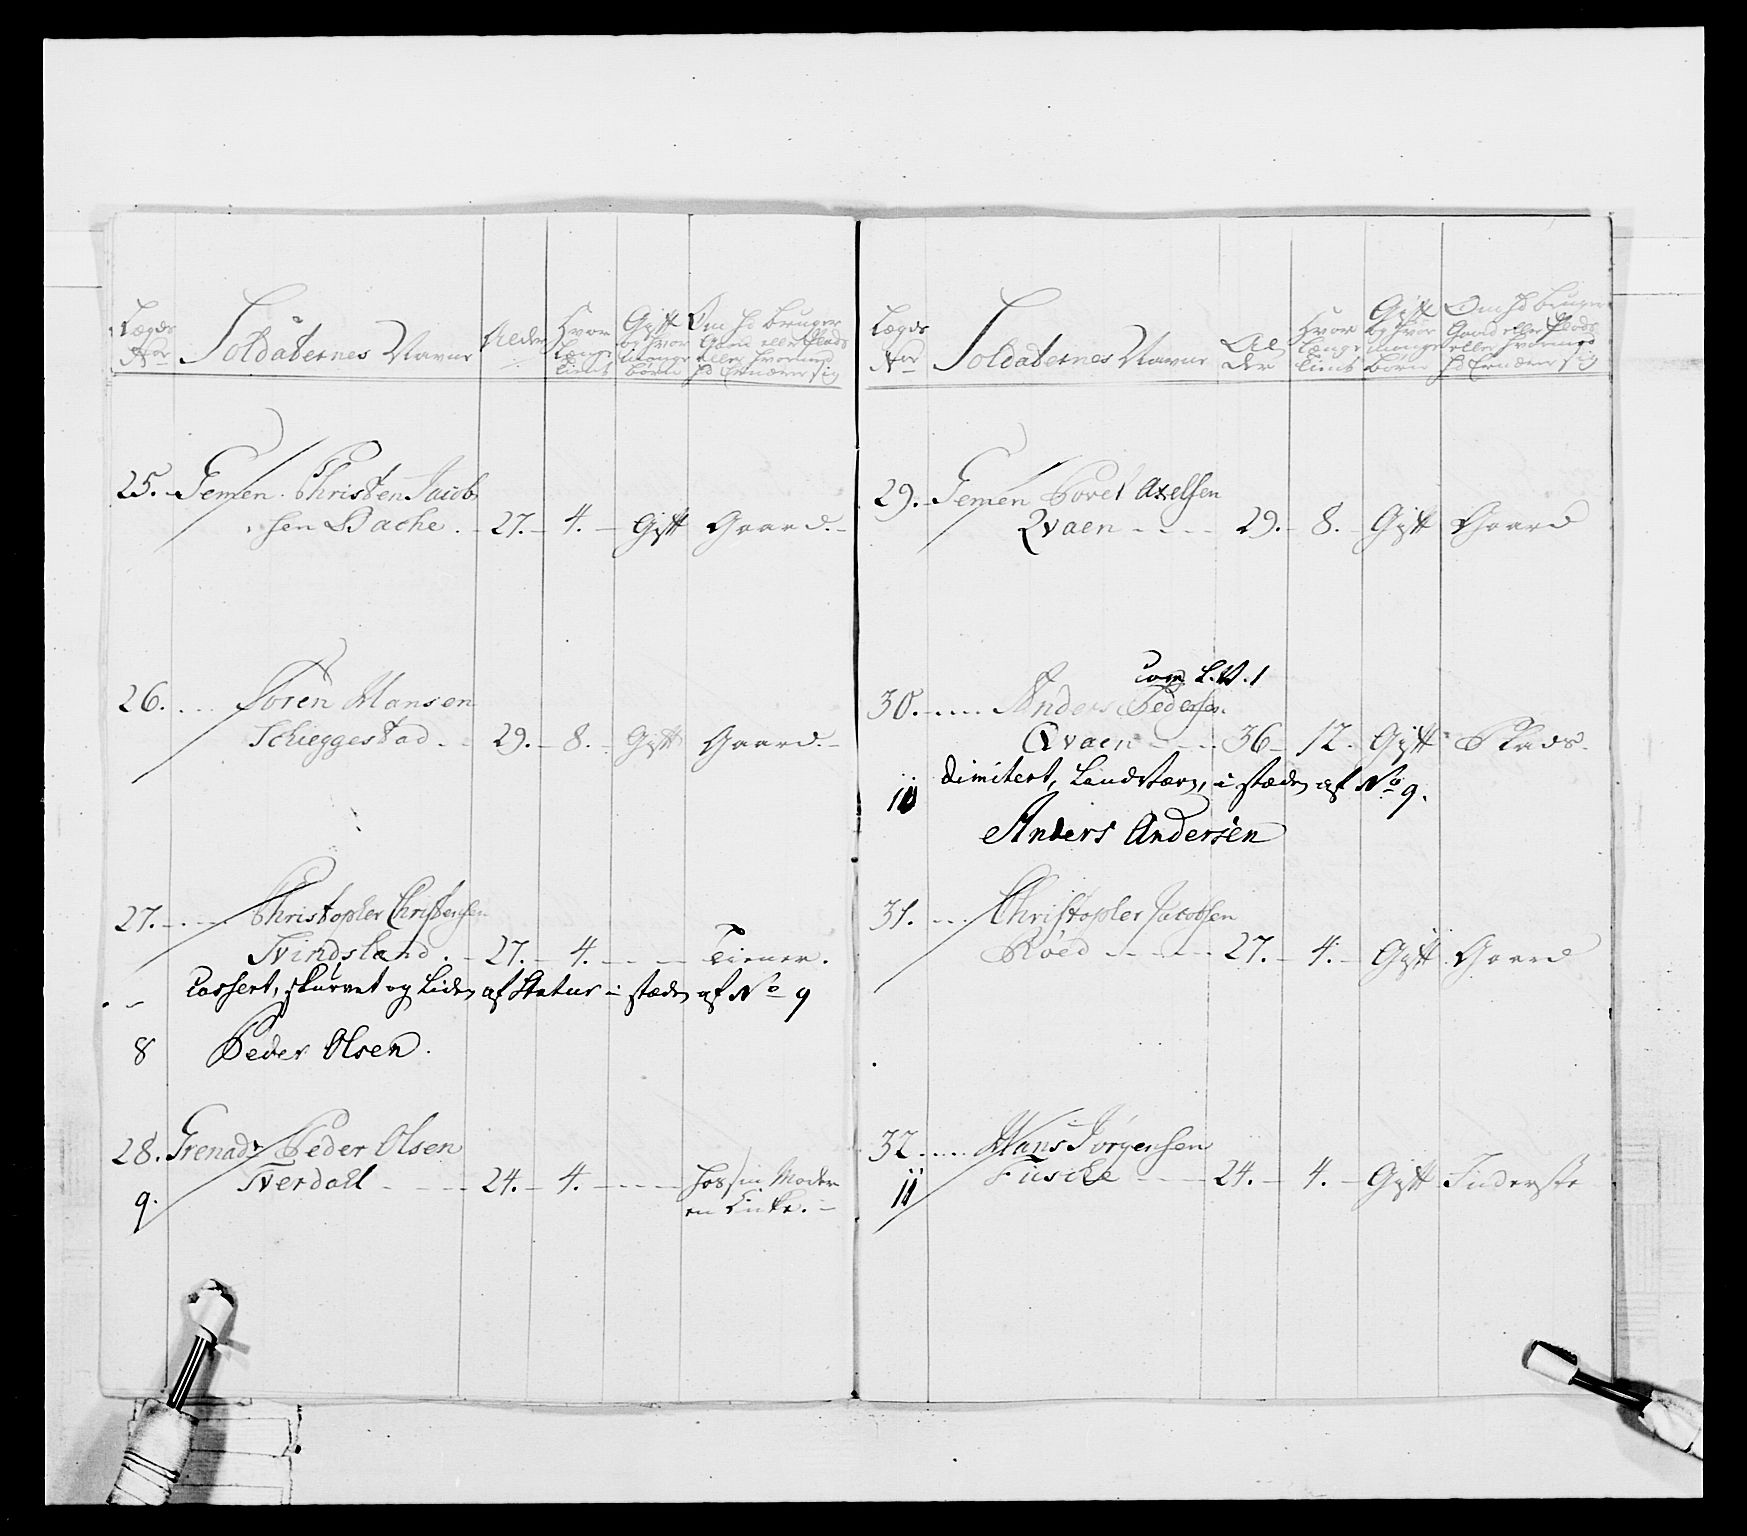 Lægds No
Soldaternes Navne
Alder
Hvor længe tient
Gift og hvor mange børn
Om hd bruger Gaard eller Plads eller hvormed hd Ernærer sig
25. Gemen. Christen Jacob
sen Bache. - 27. - 4. - Gift Gaard. -
26. .... Søren Hansen
Schieggestad - - 29. - 8. - Gift Gaard. -
27. - .... Christopher Christensen
Tvindsland. - 27. - 4. - - - Tiener.
Cassert, skurvet og liden af Statur i stæden af No 9
8 Peder Olsen.
28. Grenadr Peder Olsen
Tverdahl - - - 24. - 4. - - - - hos sin Moder
9. en Encke. -
Lægds No
Soldaternes Navne
Alder
Hvor længe tient
Gift og hvor mange børn
Om hd bruger Gaard eller Plads eller hvormed hd Ernærer sig
29. - Gemen Povel Axelsen
Qvaen - - - - 29. - 8. - Gift Gaard
Com L.V. 1
30. - .... Anders Pedersen.
Qvaen - - - 36 - 12. Gift Plads.
dimitert, Landværn, i stæden af No 9.
10
Anders Andersen
31. ... Christopher Jacobsen
Röed - - - - 27. - 4. - Gift Gaard
32. .... Hans Jörgensen
Fuske - - - 24. - 4. - Gift Inderste
11